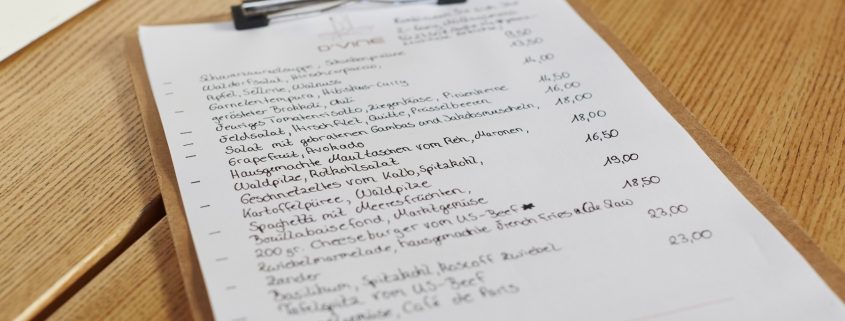 D'VINE
9,50
Waldorfsalat, Hirschcarpaccio, 13,50
Apfel, Sellerie, Walnuss
Garnelentempura, Hibiskus-Curry 14,00
gerösteter Brokkoli, Chili
Feuriges Tomatenrisotto, Ziegenkäse, Pinienkerne 14,50
Feldsalat, Hirschfilet, Quitte, Preiselbeeren 16,00
Salat mit gebratenen Gambas und Jakobsmuscheln, 18,00
Grapefruit, Avokado
Hausgemachte Maultaschen vom Reh, Maronen, 18,00
Waldpilze, Rotkohlsalat
Geschnetzeltes vom Kalb, Spitzkohl, 16,50
Kartoffelpüree, Waldpilze
Spaghetti mit Meeresfrüchten, 19,00
Bouillabaisefond, Marktgemüse
200 gr. Cheeseburger vom US-Beef 18,50
Zwiebelmarmelade, hausgemachte French Fries & Cole Slaw
Zander 23,00
Basilikum, Spitzkohl, Roscoff Zwiebel
Tafelspitz vom US-Beef 23,00
Café de Paris